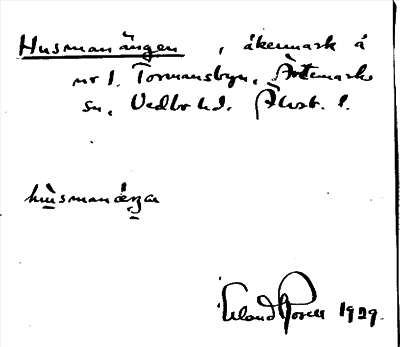 Husmanängen, åkermark å
nr 1. Tormansbyn, Ärtemarks
sn, Vedbo hd. Älvsb. l.
husmanæŋa
Erland Rosell 1939.